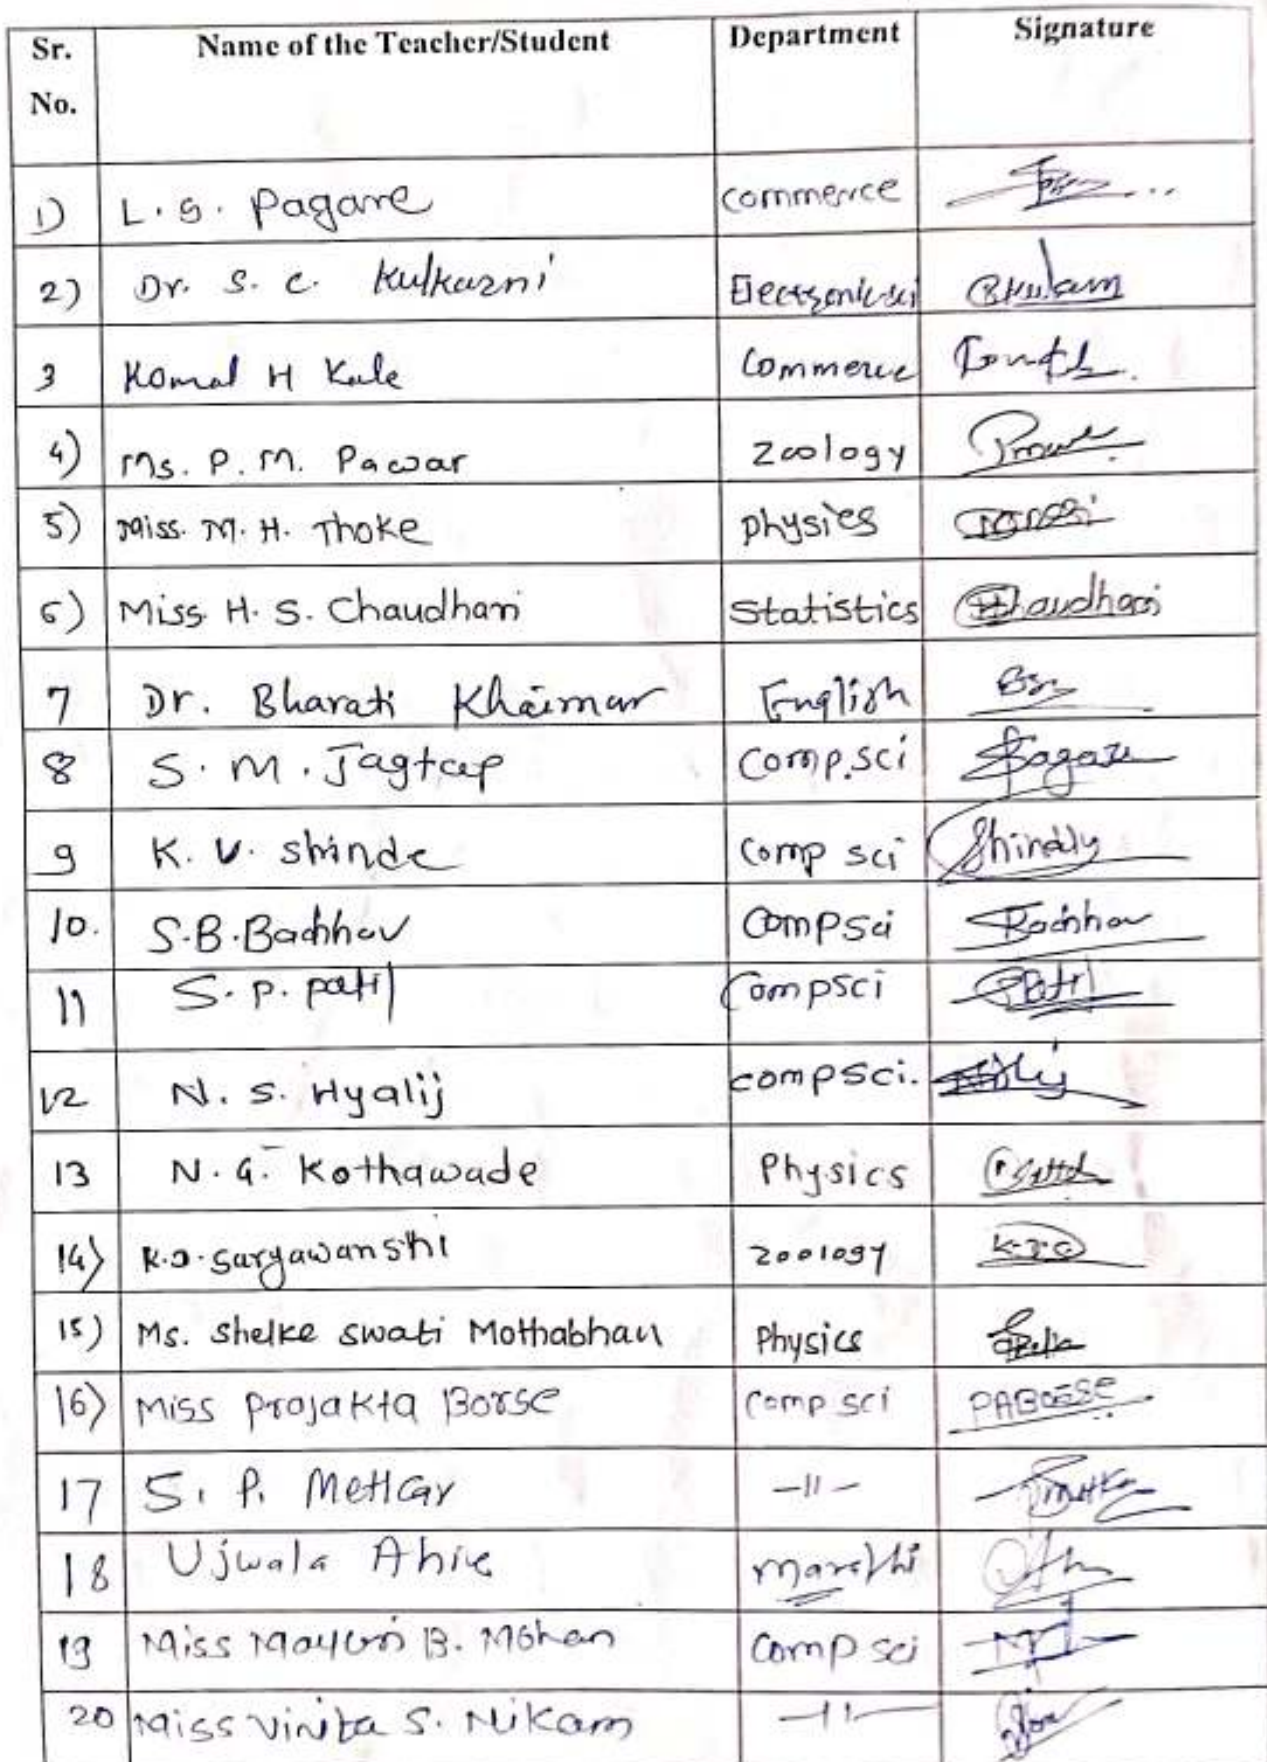 Sr. No. Name of the Teacher/Student Department Signature
1) L. S. Pagare commerce
2) Dr. S. C. Kulkarni Electronic sci
3 Komal H Kale Commerce
4) Ms. P. M. Pawar Zoology
5) Miss. M. H. Thoke physics
6) Miss. H. S. Chaudhari Statistics Chaudhari
7 Dr. Bharati Khairnar English
8 S. M. Jagtap Comp.sci
9 K. V. shinde Comp sci
10. S.B.Bachhav Compsci Bachhav
11 S. P. patil Compsci Patil
12 N. S. Hyalij compsci.
13 N. G. Kothawade Physics
14) K.J. Suryawanshi zoology
15) Ms. Shelke Swati Mothabhau Physics
16) Miss Prajakta Borse Comp sci PABORSE
17 S. P. Metkar -11-
18 Ujwala Ahire Marathi
19 Miss Mayuri B. Mohan Comp sci
20 Miss Vinita S. Nikam -11-